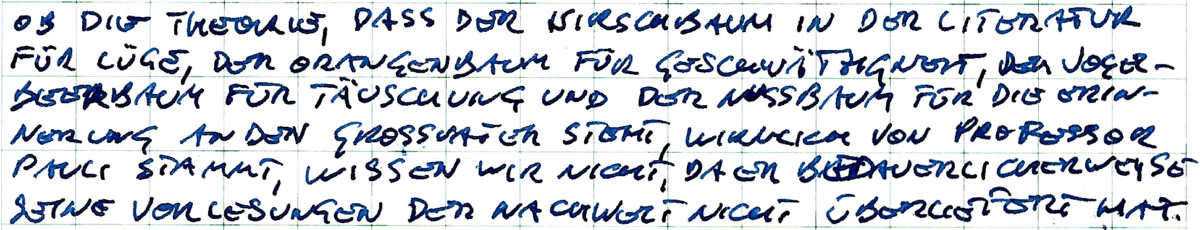 OB DIE THEORIE, DASS DER KIRSCHBAUM IN DER LITERATUR
FÜR LÜGE, DER ORANGENBAUM FÜR GESCHWÄTZIGKEIT, DER VOGEL-
BEERBAUM FÜR TÄUSCHUNG UND DER NUSSBAUM FÜR DIE ERIN-
NERUNG AN DEN GROSSVATER STEHT, WIRKLICH VON PROFESSOR
PAULI STAMMT, WISSEN WIR NICHT, DA ER BEDAUERLICHERWEISE
SEINE VORLESUNGEN DER NACHWELT NICHT ÜBERLIEFERT HAT.